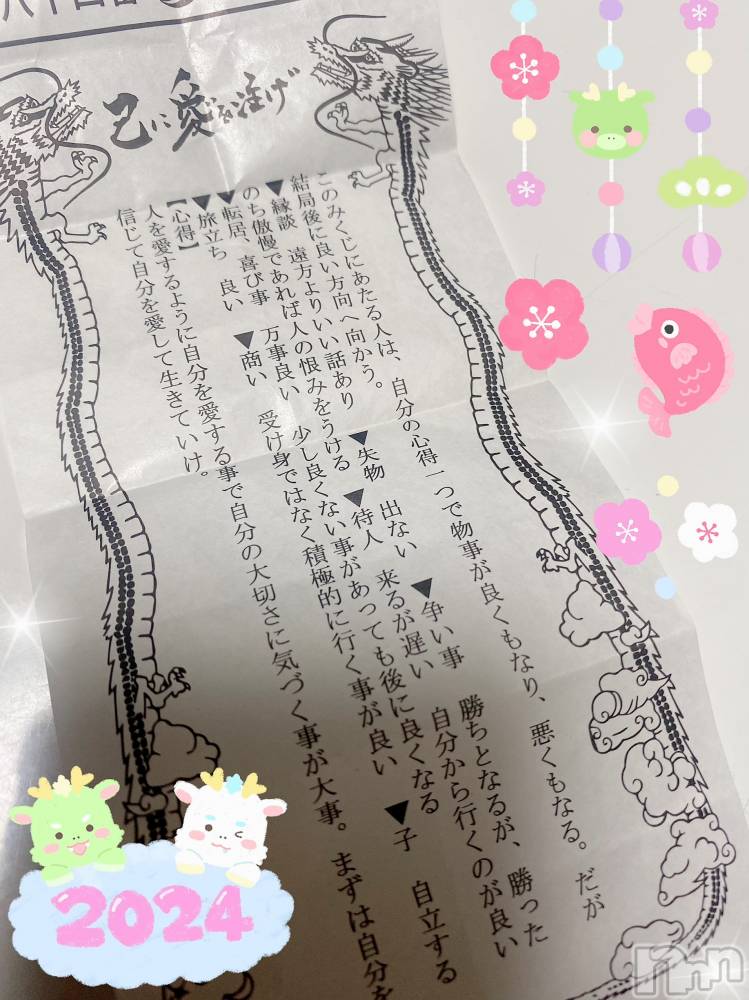 己に愛を注げ
このみくじにあたる人は、自分の心得一つで物事が良くもなり、悪くもなる。だが
結局後に良い方向へ向かう。
▼縁談 遠方よりいい話あり ▼失物 出ない ▼争い事 勝ちとなるが、勝った
のち傲慢であれば人の恨みをうける ▼待人 来るが遅い 自分から行くのが良い
▼転居、喜び事 万事良い 少し良くない事があっても後に良くなる ▼子 自立する
▼旅立ち 良い ▼商い 受け身ではなく積極的に行く事が良い
【心得】
人を愛するように自分を愛する事で自分の大切さに気づく事が大事。まずは自分を
信じて自分を愛して生きていけ。
2024